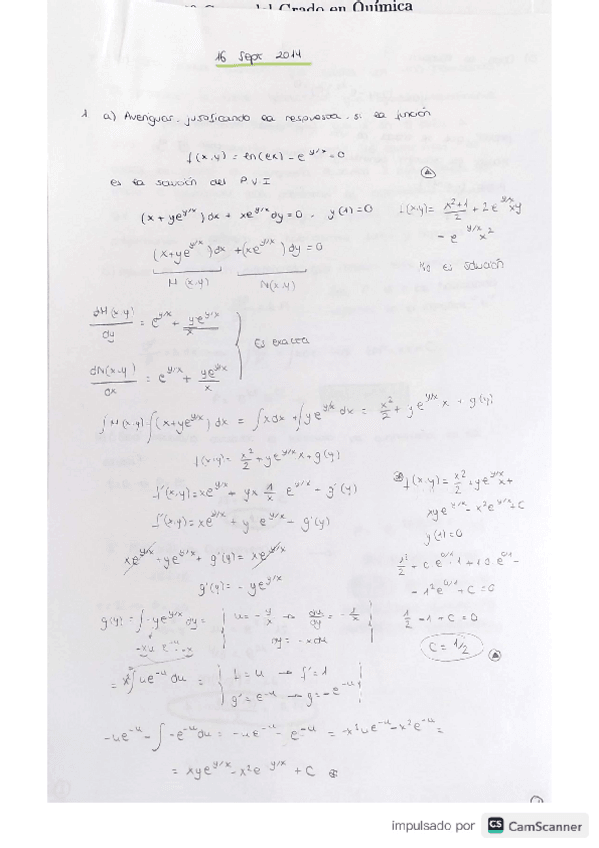 Grado en Química
16 Sept 2014
1 a) Averiguar, justificando la respuesta, si la función
f(x,y) = ln(ex) - e^y/x = 0
es la solución del P.V.I
(x + ye^y/x) dx + xe^y/x dy = 0, y(1) = 0
(x + ye^y/x) dx + (xe^y/x) dy = 0
M(x,y) N(x,y)
f(x,y) = x²+1/2 + 2e^y/x xy
- e^y/x x²
No es solución
dM(x,y)/dy = e^y/x + ye^y/x/x
Es exacta
dN(x,y)/dx = e^y/x + ye^y/x/x
∫M(x,y) ∫(x+ye^y/x) dx = ∫xdx + ∫ye^y/x dx = x²/2 + ye^y/x x + g(y)
f(x,y) = x²/2 + ye^y/x x + g(y)
f'(x,y) = xe^y/x + yx 1/x e^y/x - g'(y)
f'(x,y) = xe^y/x + y e^y/x - g'(y)
xe^y/x + ye^y/x + g'(y) = xe^y/x
g'(y) = - ye^y/x
g(y) = ∫-ye^y/x dy = | u = -y/x → du/dy = -1/x
dy = -xdu
= x²∫ue^-u du = | f = u → f' = 1
g' = e^-u → g = -e^-u
-ue^-u - ∫-e^-u du = -ue^-u - e^-u = -x²ue^-u - x²e^-u =
= xye^y/x - x²e^y/x + C
f(x,y) = x²/2 + ye^y/x x +
xye^y/x - x²e^y/x + C
y(1) = 0
1²/2 + 0·e^0/1·1 + 1·0·e^0/1 -
- 1²e^0/1 + C = 0
1/2 - 1 + C = 0
C = 1/2
impulsado por CS CamScanner